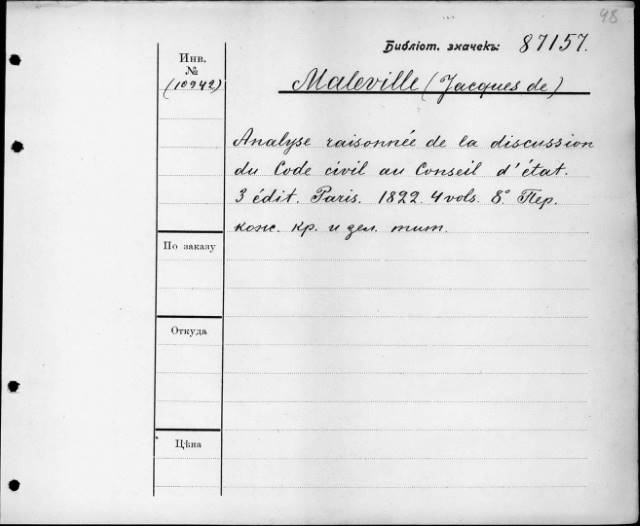 48
Библіот. значекъ: 87157.
Инв.
№
(10942)
Maleville (Jacques de)
Analyse raisonnée de la discussion
du Code civil au Conseil d'état.
3 édit. Paris. 1822. 4 vols. 8° Пер.
кож. кр. и зел. тит.
По заказу
Откуда
Цѣна